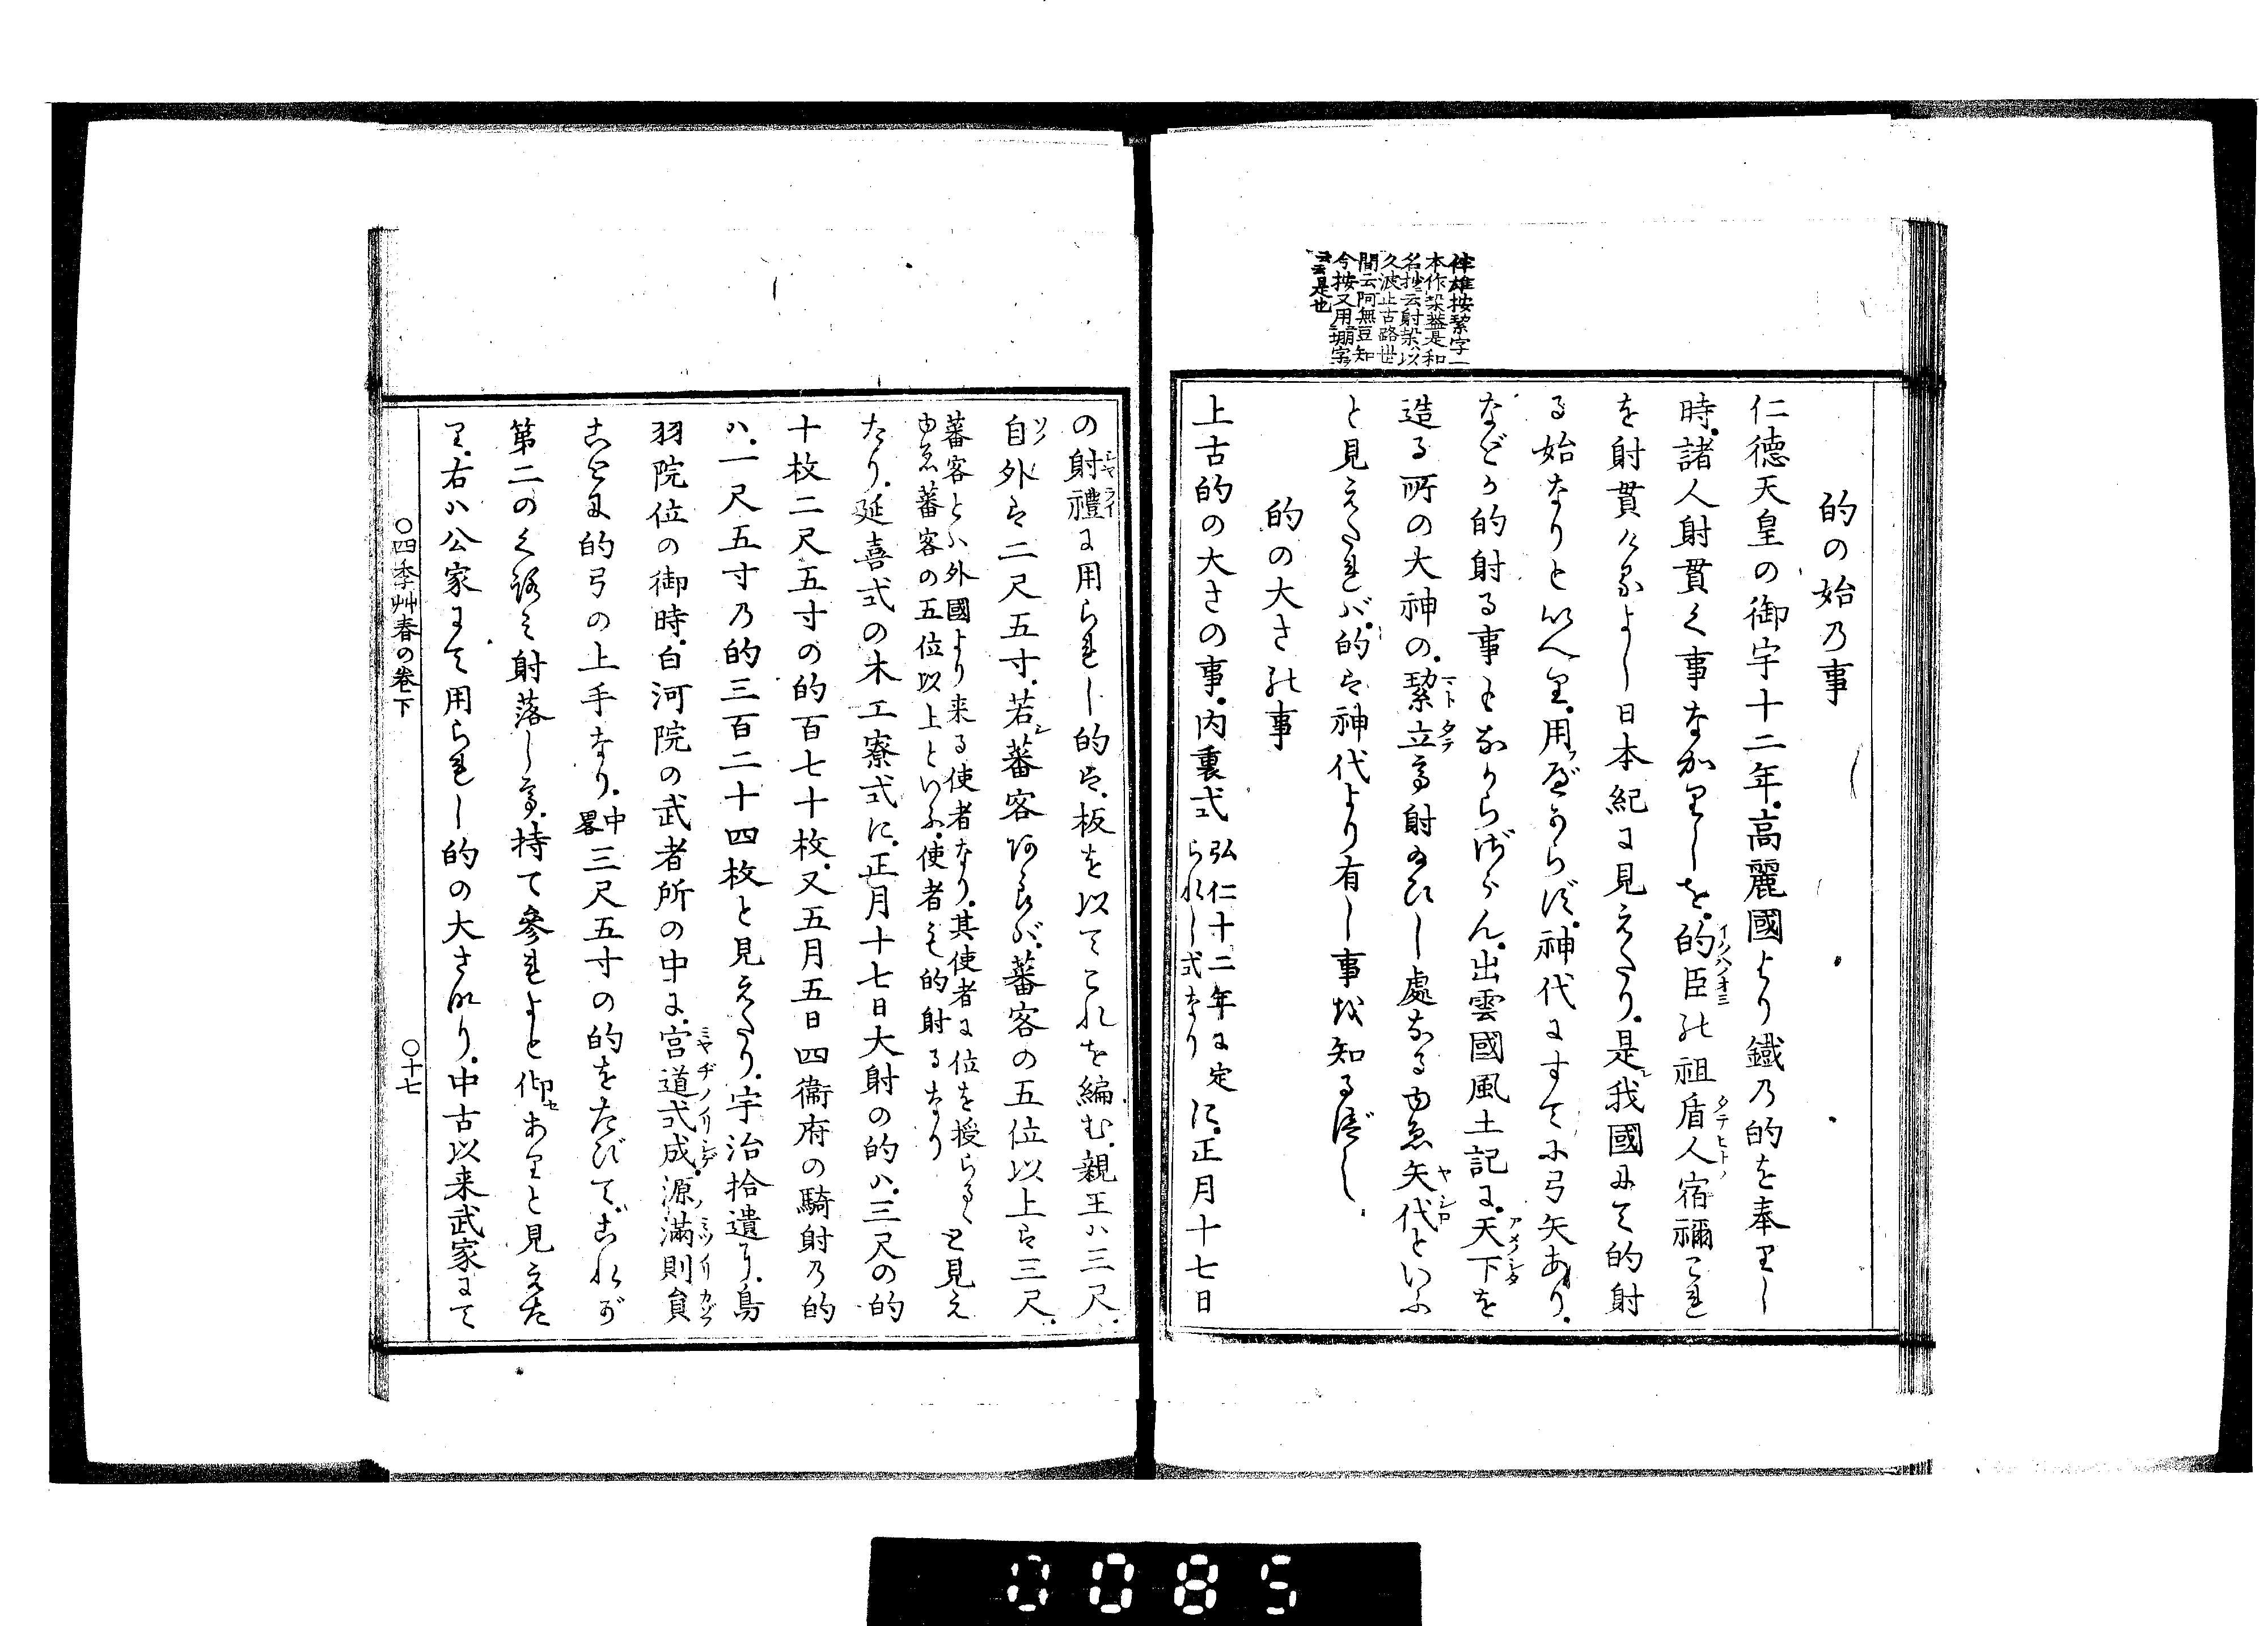 伴雄按䋈字一
本作㭍蓋是和
名抄云射㭍以
久波止古路世
間云阿無豆知
今按又用堋字
云云是也
的の始乃事
仁德天皇の御宇十二年。高麗國より鐵乃的を奉りし
時。諸人射貫く事なかりしを。的臣の祖盾人宿禰これ
を射貫けるよし日本紀に見えたり。是我國にて的射
る始なりといへり。用べからず。神代にすでに弓矢あり。
などか的射る事もなからざらん。出雲國風土記に。天下を
造る所の大神の。立て射給ひし處なるゆゑ矢代といふ
と見えたれば。的は神代より有し事を知るべし
的の大さの事
上古的の大さの事。内裏式弘仁十二年に定られし式なりに。正月十七日
の射禮に用られし的は。板を以てこれを編む。親王ハ三尺。
自外は二尺五寸。若蕃客あらば。蕃客の五位以上は三尺。
蕃客とハ外國より来る使者なり。其使者に位を授らるゝ
ゆゑ蕃客の五位以上といふ。使者も的射るなり と見え
たり。延喜式の木工寮式に。正月十七日大射の的ハ。三尺の的
十枚二尺五寸の的百七十枚。又五月五日四衞府の騎射乃的
ハ。一尺五寸乃的三百二十四枚と見えたり。宇治拾遺に。鳥
羽院位の御時。白河院の武者所の中に。宮道式成。源滿則員
ことに的弓の上手なり。中畧三尺五寸の的をたびて。これが
第二のくろみ射落して。持て參れよと仰ありと見えた
り。右ハ公家にて用られし的の大さなり。中古以来武家にて
○四季艸春の巻下
○十七
0085